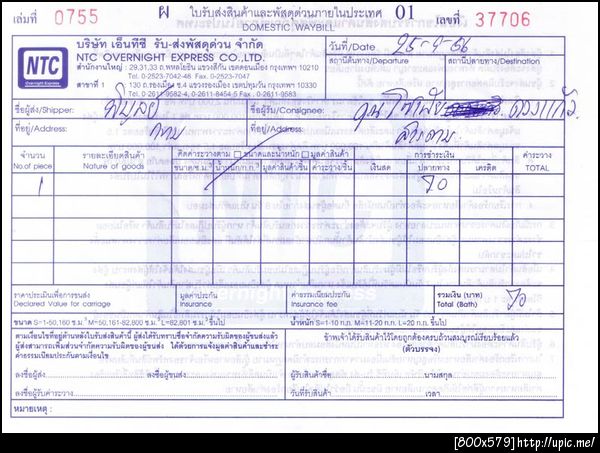 เล่มที่ 0755 ฝ ใบรับส่งสินค้าและพัสดุด่วนภายในประเทศ 01 เลขที่ 37706
DOMESTIC WAYBILL
NTC
Overnight Express
บริษัท เอ็นทีซี รับ-ส่งพัสดุด่วน จำกัด
NTC OVERNIGHT EXPRESS CO.,LTD.
สำนักงานใหญ่ : 29,31,33 ถ.พหลโยธิน แขวงสีกัน เขตดอนเมือง กรุงเทพฯ 10210
Tel. 0-2523-7042-48 Fax: 0-2523-7047
สาขาที่ 1 : 130 ถ.รองเมือง ซ.4 แขวงรองเมือง เขตปทุมวัน กรุงเทพฯ 10330
Tel. 0-2611-9582-4, 0-2611-8454,5 Fax : 0-2611-9680
วันที่/Date 25-9-06
สถานีต้นทาง/Departure สถานีปลายทาง/Destination
ชื่อผู้ส่ง/Shipper: ชื่อผู้รับ/Consignee: คุณ
ที่อยู่/Address: ที่อยู่/Address:
จำนวน รายละเอียดสินค้า คิดค่าระวางตาม ขนาดและน้ำหนัก มูลค่าสินค้า การชำระเงิน ค่าระวาง
No.of piece Nature of goods ขนาด/ซ.ม. น้ำหนัก/ก.ก. มูลค่าสินค้า/ชิ้น ค่าระวาง/ชิ้น เงินสด ปลายทาง เครดิต TOTAL
1 70
ราคาประเมินเพื่อการขนส่ง มูลค่าประกัน ค่าธรรมเนียมประกัน รวมเงิน (บาท) 70
Declared Value for carriage Insurance Insurance fee Total (Bath)
ขนาด S=1-50,160 ซม.³ M=50,161-82,800 ซม.³ L=82,801 ซม.³ ขึ้นไป น้ำหนัก S=1-10 ก.ก. M=11-20 ก.ก. L=20 ก.ก. ขึ้นไป
ตามเงื่อนไขที่อยู่ด้านหลังใบรับส่งสินค้านี้ ผู้ส่งได้รับทราบข้อจำกัดความรับผิดของผู้ขนส่งแล้ว
ผู้ส่งสามารถเพิ่มส่วนจำกัดความรับผิดของผู้ขนส่ง ได้ด้วยการแจ้งมูลค่าสินค้าและชำระ
ค่าธรรมเนียมประกันตามเงื่อนไข
ข้าพเจ้าได้รับสินค้าไว้โดยถูกต้องครบถ้วนสมบูรณ์เรียบร้อยแล้ว
(ตัวบรรจง)
ลงชื่อผู้ส่ง ลงชื่อผู้ขนส่ง ผู้รับสินค้าชื่อ นามสกุล
ลงชื่อผู้รับค่าระวาง วันที่รับสินค้า เวลา
หมายเหตุ :
[800x579] http://upic.me/